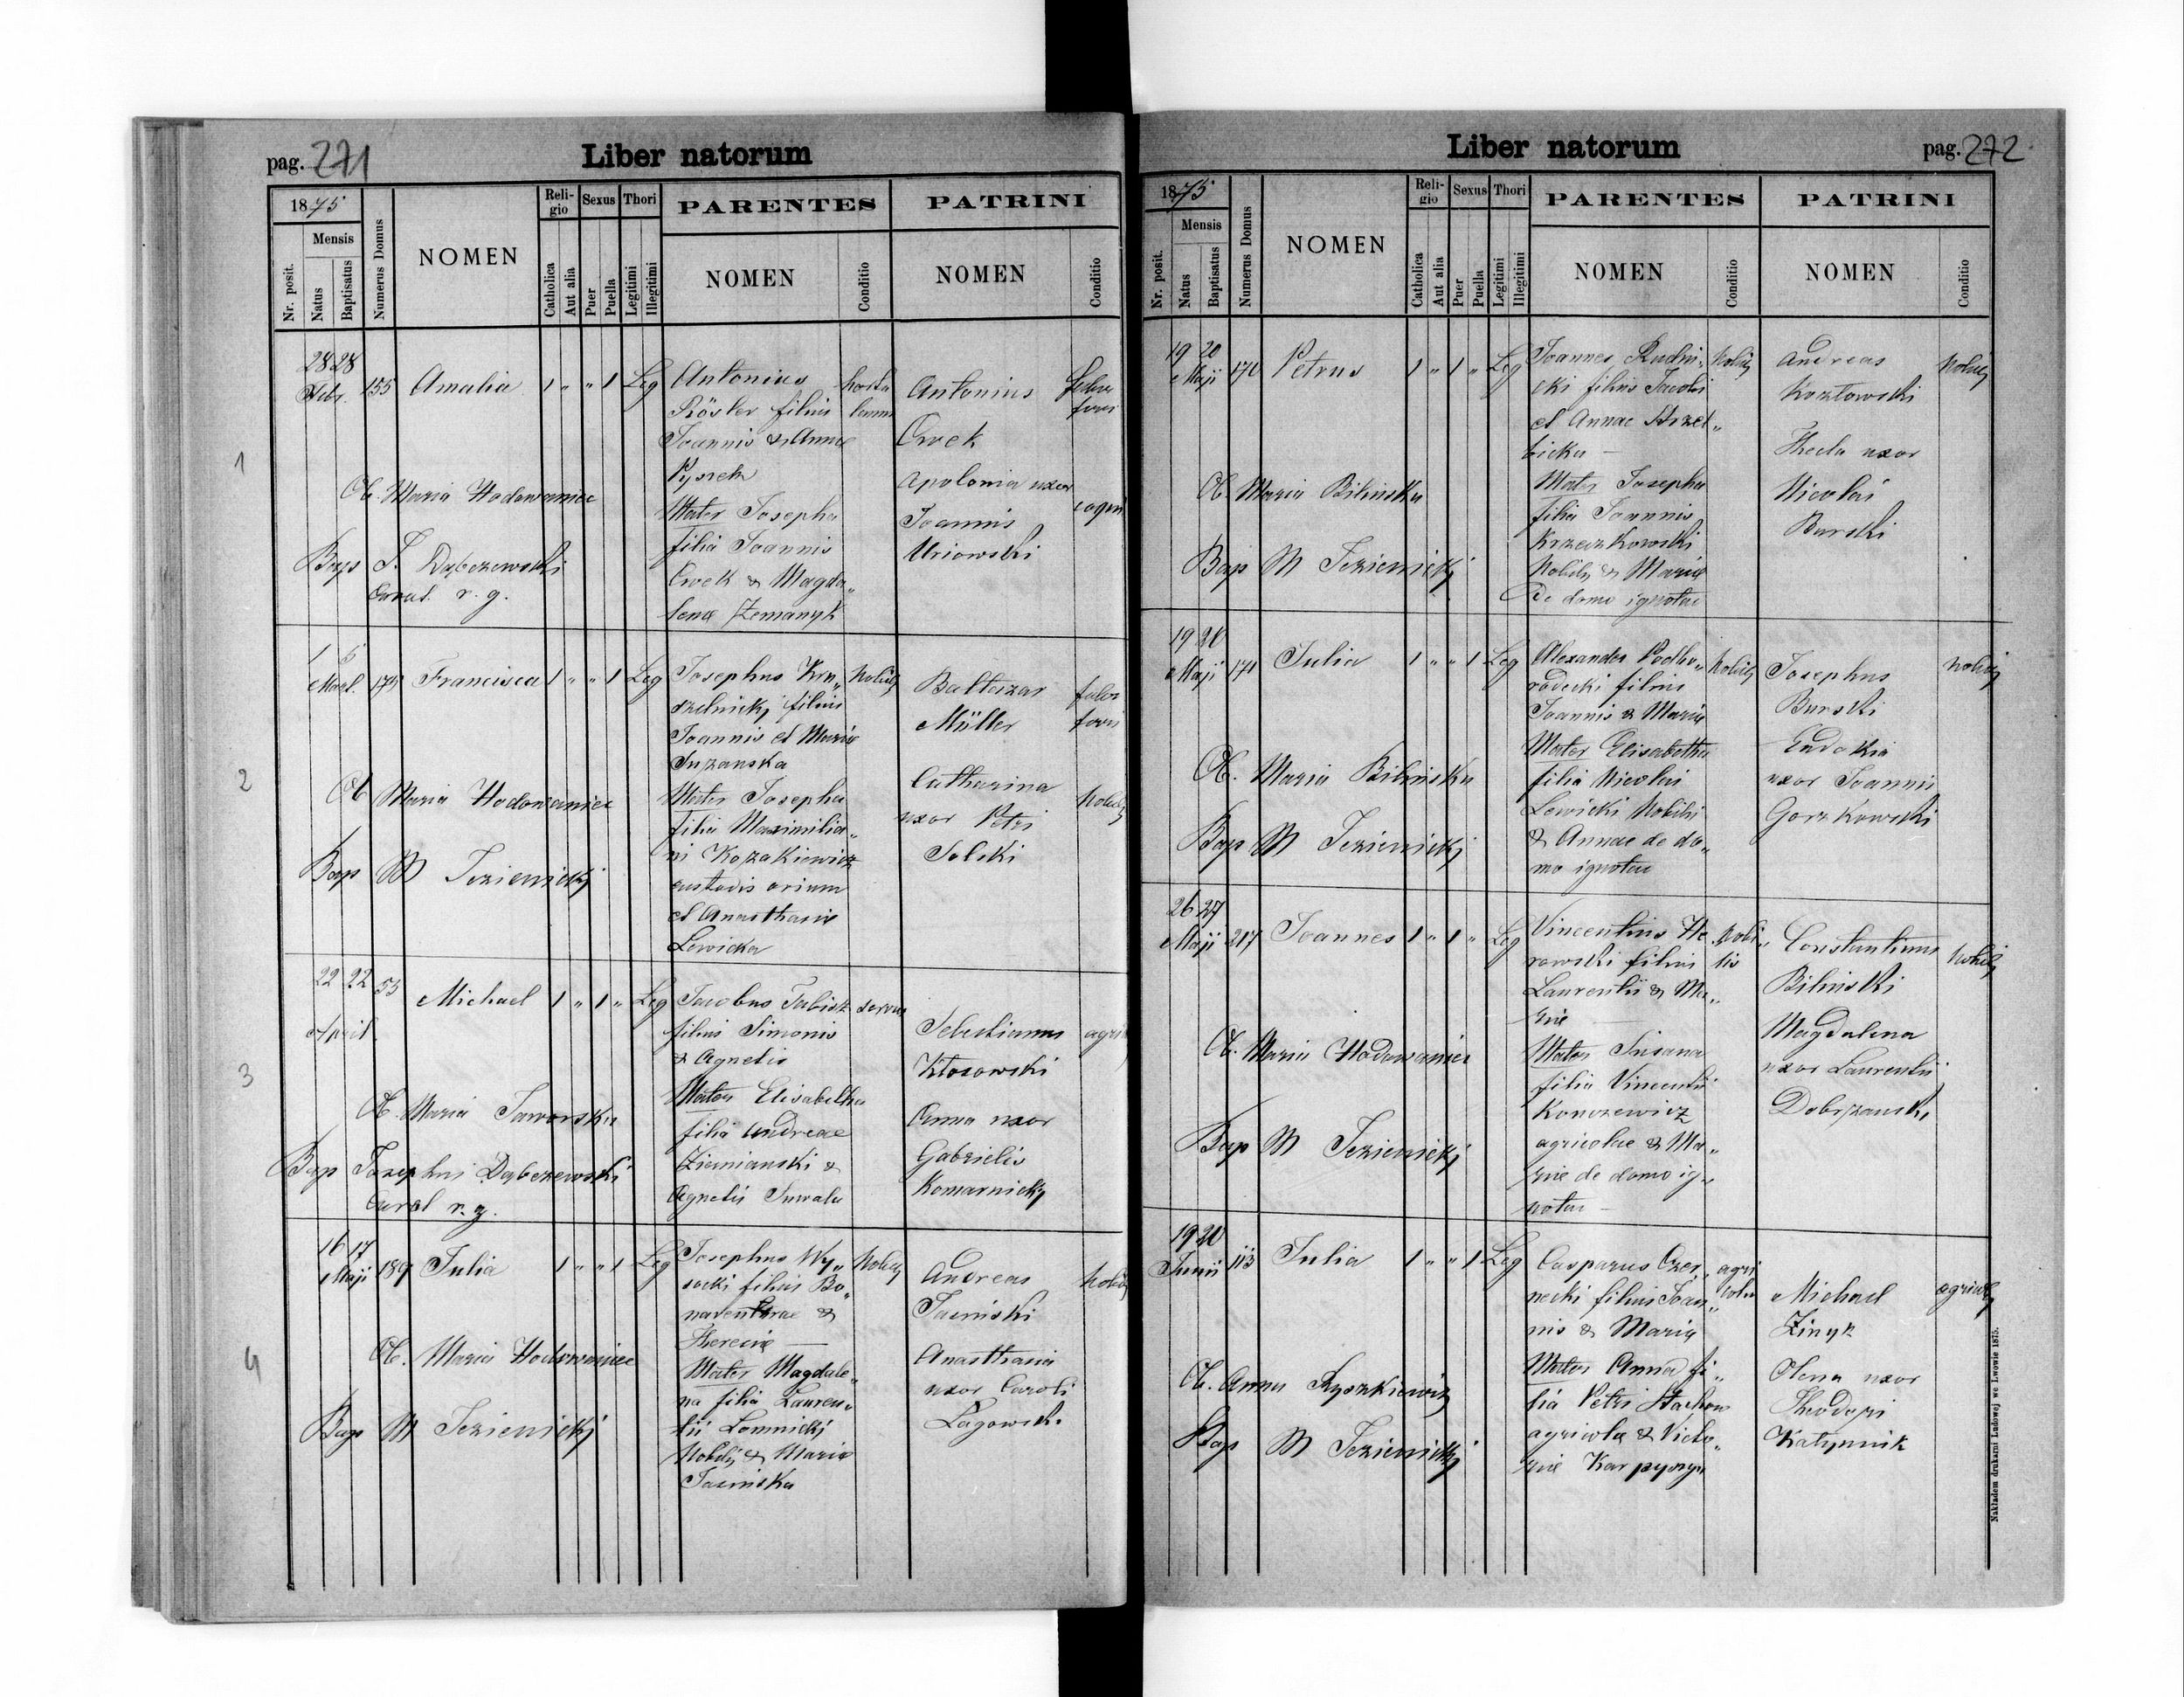 pag. 271
Liber natorum
1875
Mensis
Nr. posit.
Natus
Baptisatus
Numerus Domus
NOMEN
Reli-
gio
Catholica
Aut alia
Sexus
Puer
Puella
Thori
Legitimi
Illegitimi
PARENTES
NOMEN
Conditio
PATRINI
NOMEN
Conditio
1
28 28
Febr. 155 Amalia 1 " " 1 Leg
Ob. Maria Hodowaniec
Bap J. Dąbczewski
r. g.
Antonius
Rösler filius
Joannis & Anna
Mater Josepha
filia Joannis
Cwek & Magda„
lena Zemanyk
Antonius
Cwek
Apolonia uxor
Joannis
Uriowski
2
1 5
179 Francisca 1 " " 1 Leg
Ob Maria Hodowaniec
Bap M Jezienickj
Josephus Kru„
szelnickj filius
Joannis et Maria
Suzanska
Mater Josepha
filia Maximilia„
ni Kozakiewicz
custodis
et Anasthasiæ
Lewicka
Nobilis
Baltazar
Müller
Catharina
uxor Petri
Solski
faber
Nobilis
3
22 22
April 53 Michael 1 " 1 " Leg
Ob Maria Jaworska
Bap Josephus Dąbczewski
r. g.
Jacobus Tabisz
filius Simonis
& Agnetis
Mater Elisabetha
filia Andreae
Ziemianski &
Agnetis Suwala
Sebestianus
Kłosowski
Anna uxor
Gabrielis
Komarnickj
4
16 17
Maji 189 Julia 1 " " 1 Leg
Ob. Maria Hodowaniec
Bap M Jezienickj
Josephus Wy„
socki filius Bo„
naventurae &
Theresiæ
Mater Magdale„
na filia Lauren„
tii Lomnickj
Nobilis & Maria
Jasinska
Nobilis
Andreas
Jasinski
Anasthasia
uxor Caroli
Łagowski
Nobilis
Liber natorum
pag. 272
1875
Mensis
Nr. posit.
Natus
Baptisatus
Numerus Domus
NOMEN
Reli-
gio
Catholica
Aut alia
Sexus
Puer
Puella
Thori
Legitimi
Illegitimi
PARENTES
NOMEN
Conditio
PATRINI
NOMEN
Conditio
19 20
Maji 170 Petrus 1 " 1 " Leg
Ob. Maria Bilinska
Bap M Jezienickj
Joannes Rudni„
cki filius Jacobi
et Annae Strzel„
bicka —
Mater Josepha
filia Joannis
Krzeczkowski
Nobilis & Mariæ
de domo ignotae
Nobilis
Andreas
Kozłowski
Thecla uxor
Nicolai
Burski
Nobilis
19 20
Maji 171 Julia 1 " " 1 Leg
Ob. Maria Bilinska
Bap M Jezienickj
Alexander Podho„
rodecki filius
Joannis & Mariæ
Mater Elisabetha
filia Nicolai
Lewicki Nobilis
& Annae de do„
mo ignotae
Nobilis
Josephus
Burski
Eudokia
uxor Joannis
Gorzkowski
nobilis
26 27
Maji 217 Joannes 1 " 1 " Leg
Ob. Maria Hodowaniec
Bap M Jezienickj
Vincentius Ho
rowski filius
Laurentii & Ma„
riæ
Mater Susana
filia Vincentii
Konczewicz
agricolae & Ma„
riæ de domo ig„
notae —
Nobi„
lis
Constantinus
Bilinski
Magdalena
uxor Laurentii
Dobrzanski
Nobilis
19 20
Junii 113 Julia 1 " " 1 Leg
Ob. Anna Ryszkiewicz
Bap M Jezienickj
Casparus Czer„
necki filius Joan„
nis & Mariæ
Mater Anna fi„
lia Petri Stachow
agricolæ & Victo„
riæ Karpyszyn
agri
cola
Michael
Zinyk
Olena uxor
Theodori
Katynnik
agricola
Nakładem drukarni Ludowej we Lwowie 1875.